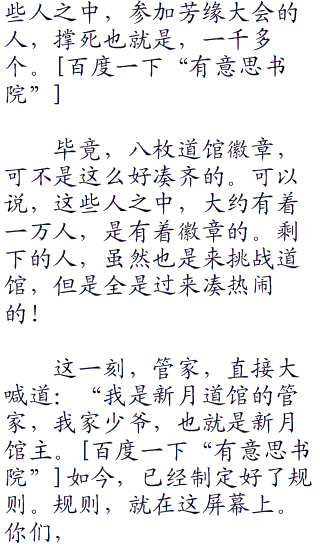 些人之中，参加芳缘大会的
人，撑死也就是，一千多
个。[百度一下“有意思书
院”]
毕竟，八枚道馆徽章，
可不是这么好凑齐的。可以
说，这些人之中，大约有着
一万人，是有着徽章的。剩
下的人，虽然也是来挑战道
馆，但是全是过来凑热闹
的！
这一刻，管家，直接大
喊道：“我是新月道馆的管
家，我家少爷，也就是新月
馆主。[百度一下“有意思书
院”]如今，已经制定好了规
则。规则，就在这屏幕上。
你们，